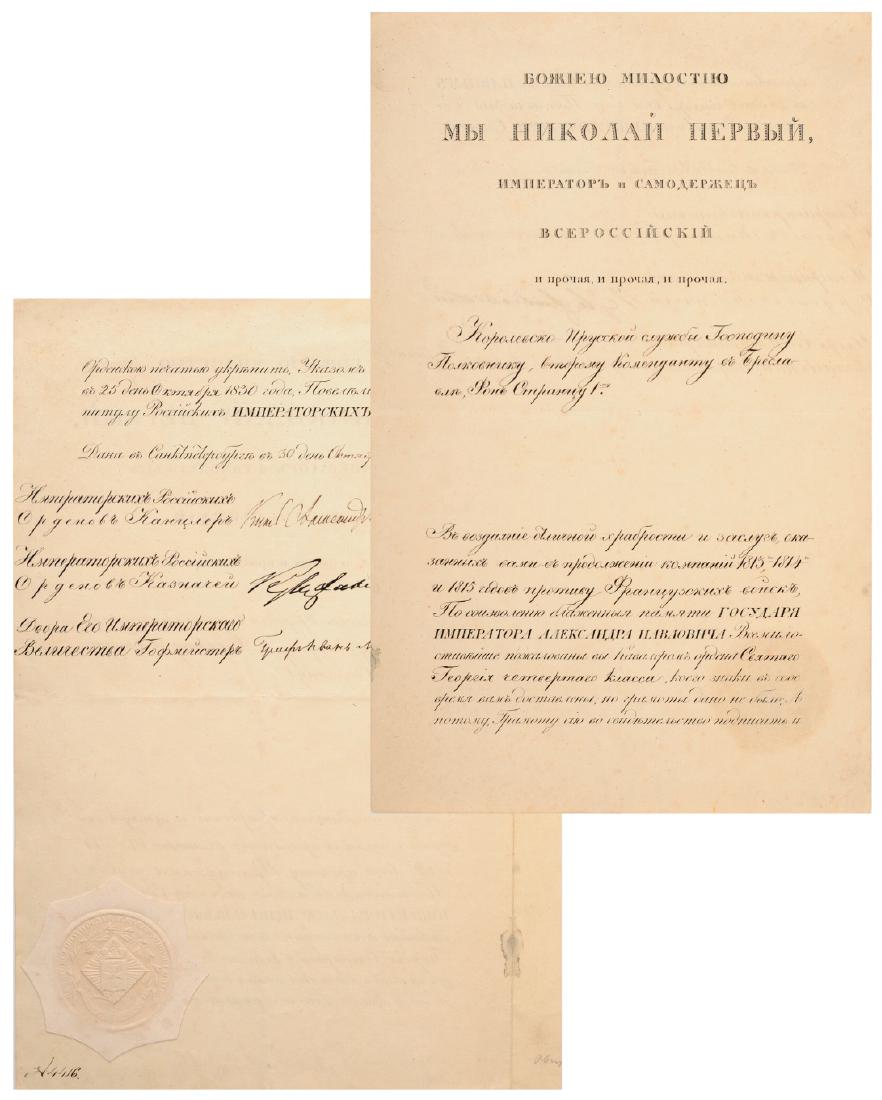 БОЖІЕЮ МИЛОСТІЮ
МЫ НИКОЛАЙ ПЕРВЫЙ,
ИМПЕРАТОРЪ и САМОДЕРЖЕЦЪ
ВСЕРОССІЙСКІЙ
и прочая, и прочая, и прочая.
Королевско Прусской службы Господину
Полковнику, второму Коменданту въ Бресла-
влѣ, Фонъ Странцу 1му
Въ воздаяніе отличной храбрости и заслугъ, ока-
занныхъ вами въ продолженіи компаній 1813го 1814го
и 1815 годовъ противу Французскихъ войскъ,
По соизволенію блаженныя памяти ГОСУДАРЯ
ИМПЕРАТОРА АЛЕКСАНДРА ПАВЛОВИЧА Всемило-
стивѣйше пожалованы вы Кавалеромъ ордена Святаго
Георгія четвертаго класса, коего знаки въ свое
время вамъ доставлены, но грамоты дано не было; А
потому, Грамоту сію во свидѣтельство подписать и
Орденскою печатью укрѣпить, Указомъ
въ 25 день Октября 1830 года, Повелѣли
питулу Россійскихъ ИМПЕРАТОРСКИХЪ
Дана въ Санктпетербургѣ въ 30 день Октяб
Императорскихъ Россійскихъ
Орденовъ Канцлеръ
Императорскихъ Россійскихъ
Орденовъ Казначей
Двора Его Императорскаго
Величества Гофмейстеръ Графъ Иванъ
№ 4416.